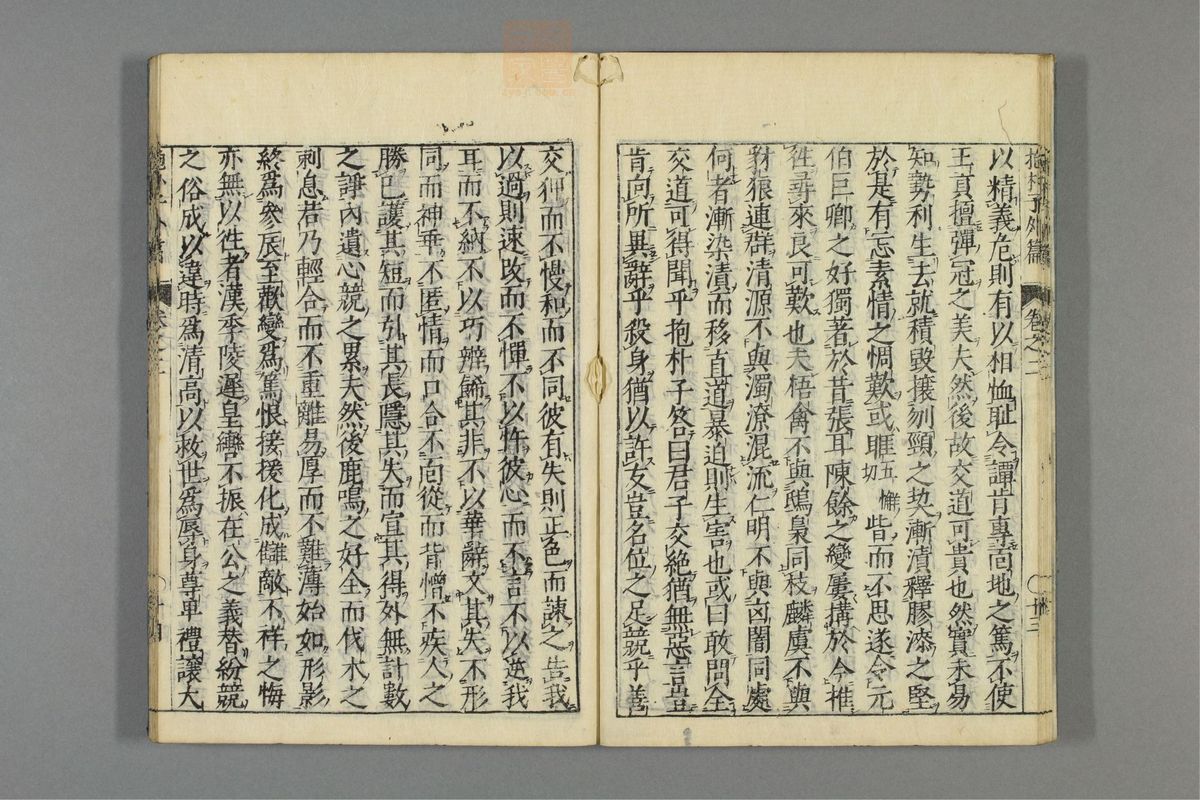 以精義危則有以相恤耻令譚肯專面地之篤不使
王貢擅彈冠之美夫然後故交道可貴也然實未易
知勢利生去就積毀壞刎頸之契漸漬釋膠漆之堅
於是有忘素情之惆歎或睚五懈切眥而不思遂令元
伯巨卿之好獨著於昔張耳陳餘之變屢搆於今推
徃尋來良可歎也夫梧禽不與鴟梟同枝麟虞不與
豺狼連群清源不與濁潦混流仁明不與凶闇同處
何者漸染漬而移直道暴迫則生害也或曰敢問全
交道可得聞乎抱朴子答曰君子交絶猶無惡言豈
肯向所異辭乎殺身猶以許友豈名位之足競乎善
抱朴子外篇 卷之二 廿三
交狎而不慢和而不同彼有失則正色而諫之告我
以過則速改而不憚不以忤彼心而不言不以逆我
耳而不納不以巧辨飾其非不以華辭文其失不形
同而神乖不匿情而口合不面從而背憎不疾人之
勝已護其短而引其長隱其失而宣其得外無計數
之諍內遺心競之累夫然後鹿鳴之好全而伐木之
刺息若乃輕合而不重離易厚而不難薄始如形影
終爲參辰至歡變爲篤恨接援化成讎敵不祥之悔
亦無以徃者漢季陵遲皇轡不振在公之義替紛競
之俗成以違時爲清高以救世爲辱身尊卑禮讓大